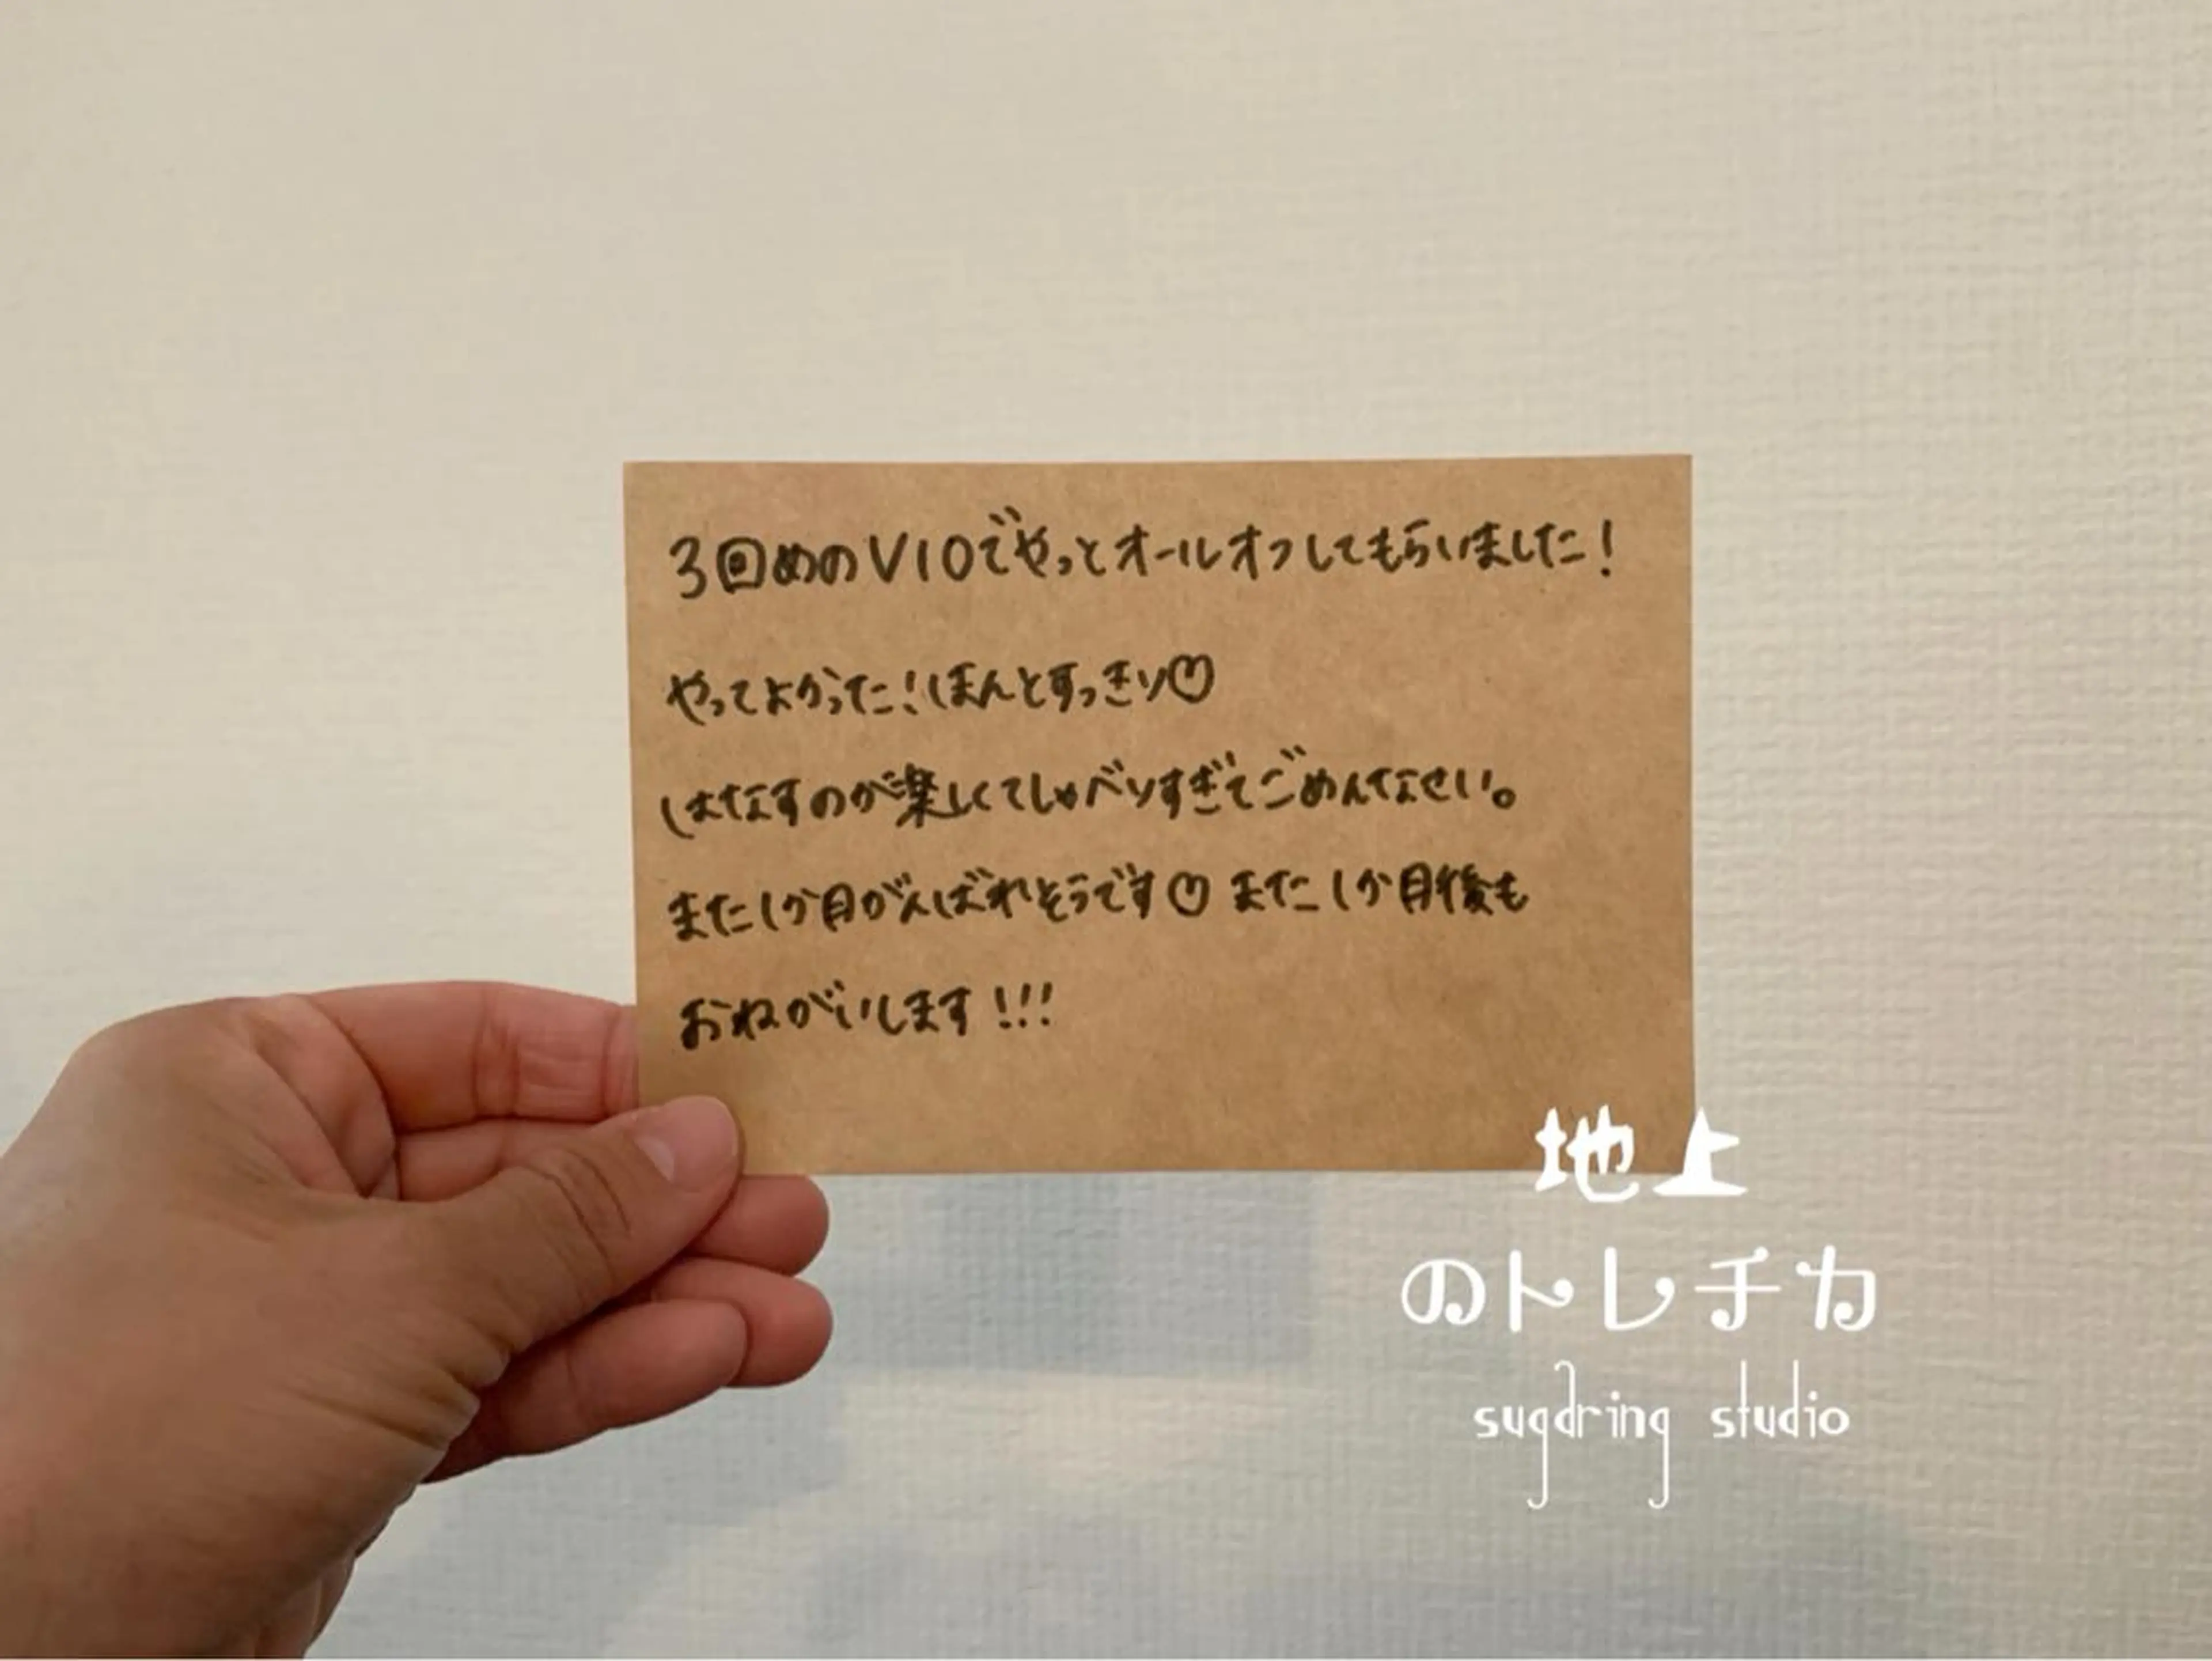 3回めのVIOでやっとオールオフしてもらいました！
やってよかった！ほんとすっきり♡
はなすのが楽しくてしゃべりすぎてごめんなさい。
また1か月がんばれそうです♡ また1か月後も
おねがいします!!!
地上
のトレチカ
sugaring studio